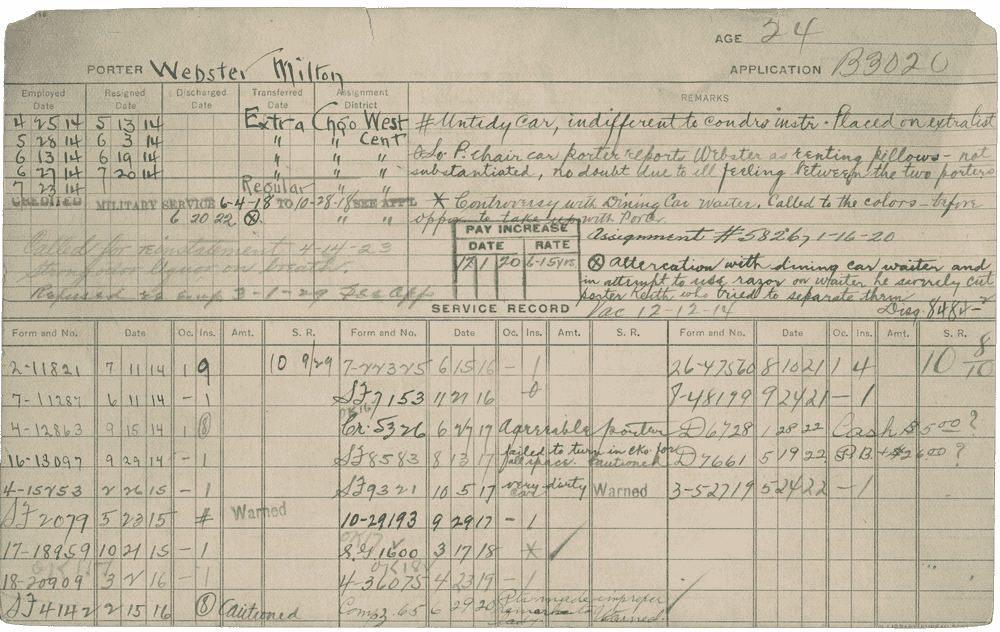 AGE 24
PORTER Webster Milton
APPLICATION B3020
Employed Date Resigned Date Discharged Date Transferred Date Assignment District REMARKS
4 25 14 5 13 14 Extra Chgo West # Untidy Car, indifferent to condrs instr. Placed on extra list
5 28 14 6 3 14 " " Cent
6 13 14 6 19 14 " " " Also P. chair car porter reports Webster as renting pillows - not
6 27 14 7 20 14 " " " substantiated, no doubt due to ill feeling between the two porters
7 23 14 Regular " "
CREDITED MILITARY SERVICE 6-4-18 TO 10-28-18 SEE APPL * Controversy with Dining Car waiter. Called to the colors - before
6 20 22 ⊗ " " oppor. to take up with Porter.
PAY INCREASE
DATE RATE
1 20 6-15 yrs.
Assignment # 5826, 1-16-20
Called for reinstatement 4-14-23
Strong odor liquor on breath.
Refused re emp 3-1-29 See App
⊗ Altercation with dining car waiter and
in attempt to use razor on waiter he severely cut
porter Keith, who tried to separate them
Vac 12-12-14 Disg. 8484-
SERVICE RECORD
Form and No. Date Oc. Ins. Amt. S. R. Form and No. Date Oc. Ins. Amt. S. R. Form and No. Date Oc. Ins. Amt. S. R.
2-11821 7 11 14 1 9 10 9/29 7-22325 6 15 16 - 1 26-47560 8 10 21 1 4 10 8/10
7-11287 6 11 14 - 1 SF7153 11 21 16 7-48199 9 24 21 - 1
4-12863 9 15 14 1 Cr. 5326 6 27 17 Agreeable porter D6728 1 28 22 Cash $5.00?
16-13097 9 29 14 - 1 SF8583 8 13 17 failed to turn in cks for all space. Cautioned D7661 5 19 22 + $26.00?
4-15253 2 26 15 - 1 SF9321 10 5 17 very dirty car Warned 3-52719 5 24 22 - 1
SF2079 5 23 15 # Warned 10-29193 9 29 17 - 1
17-18959 10 21 15 - 1 S.F. 1600 3 17 18 *
18-20909 3 2 16 - 1 4-36075 4 23 19 - 1
SF4142 2 15 16 Cautioned Comp. 65 6 29 20 Ptr. made improper remarks to lady. Warned.